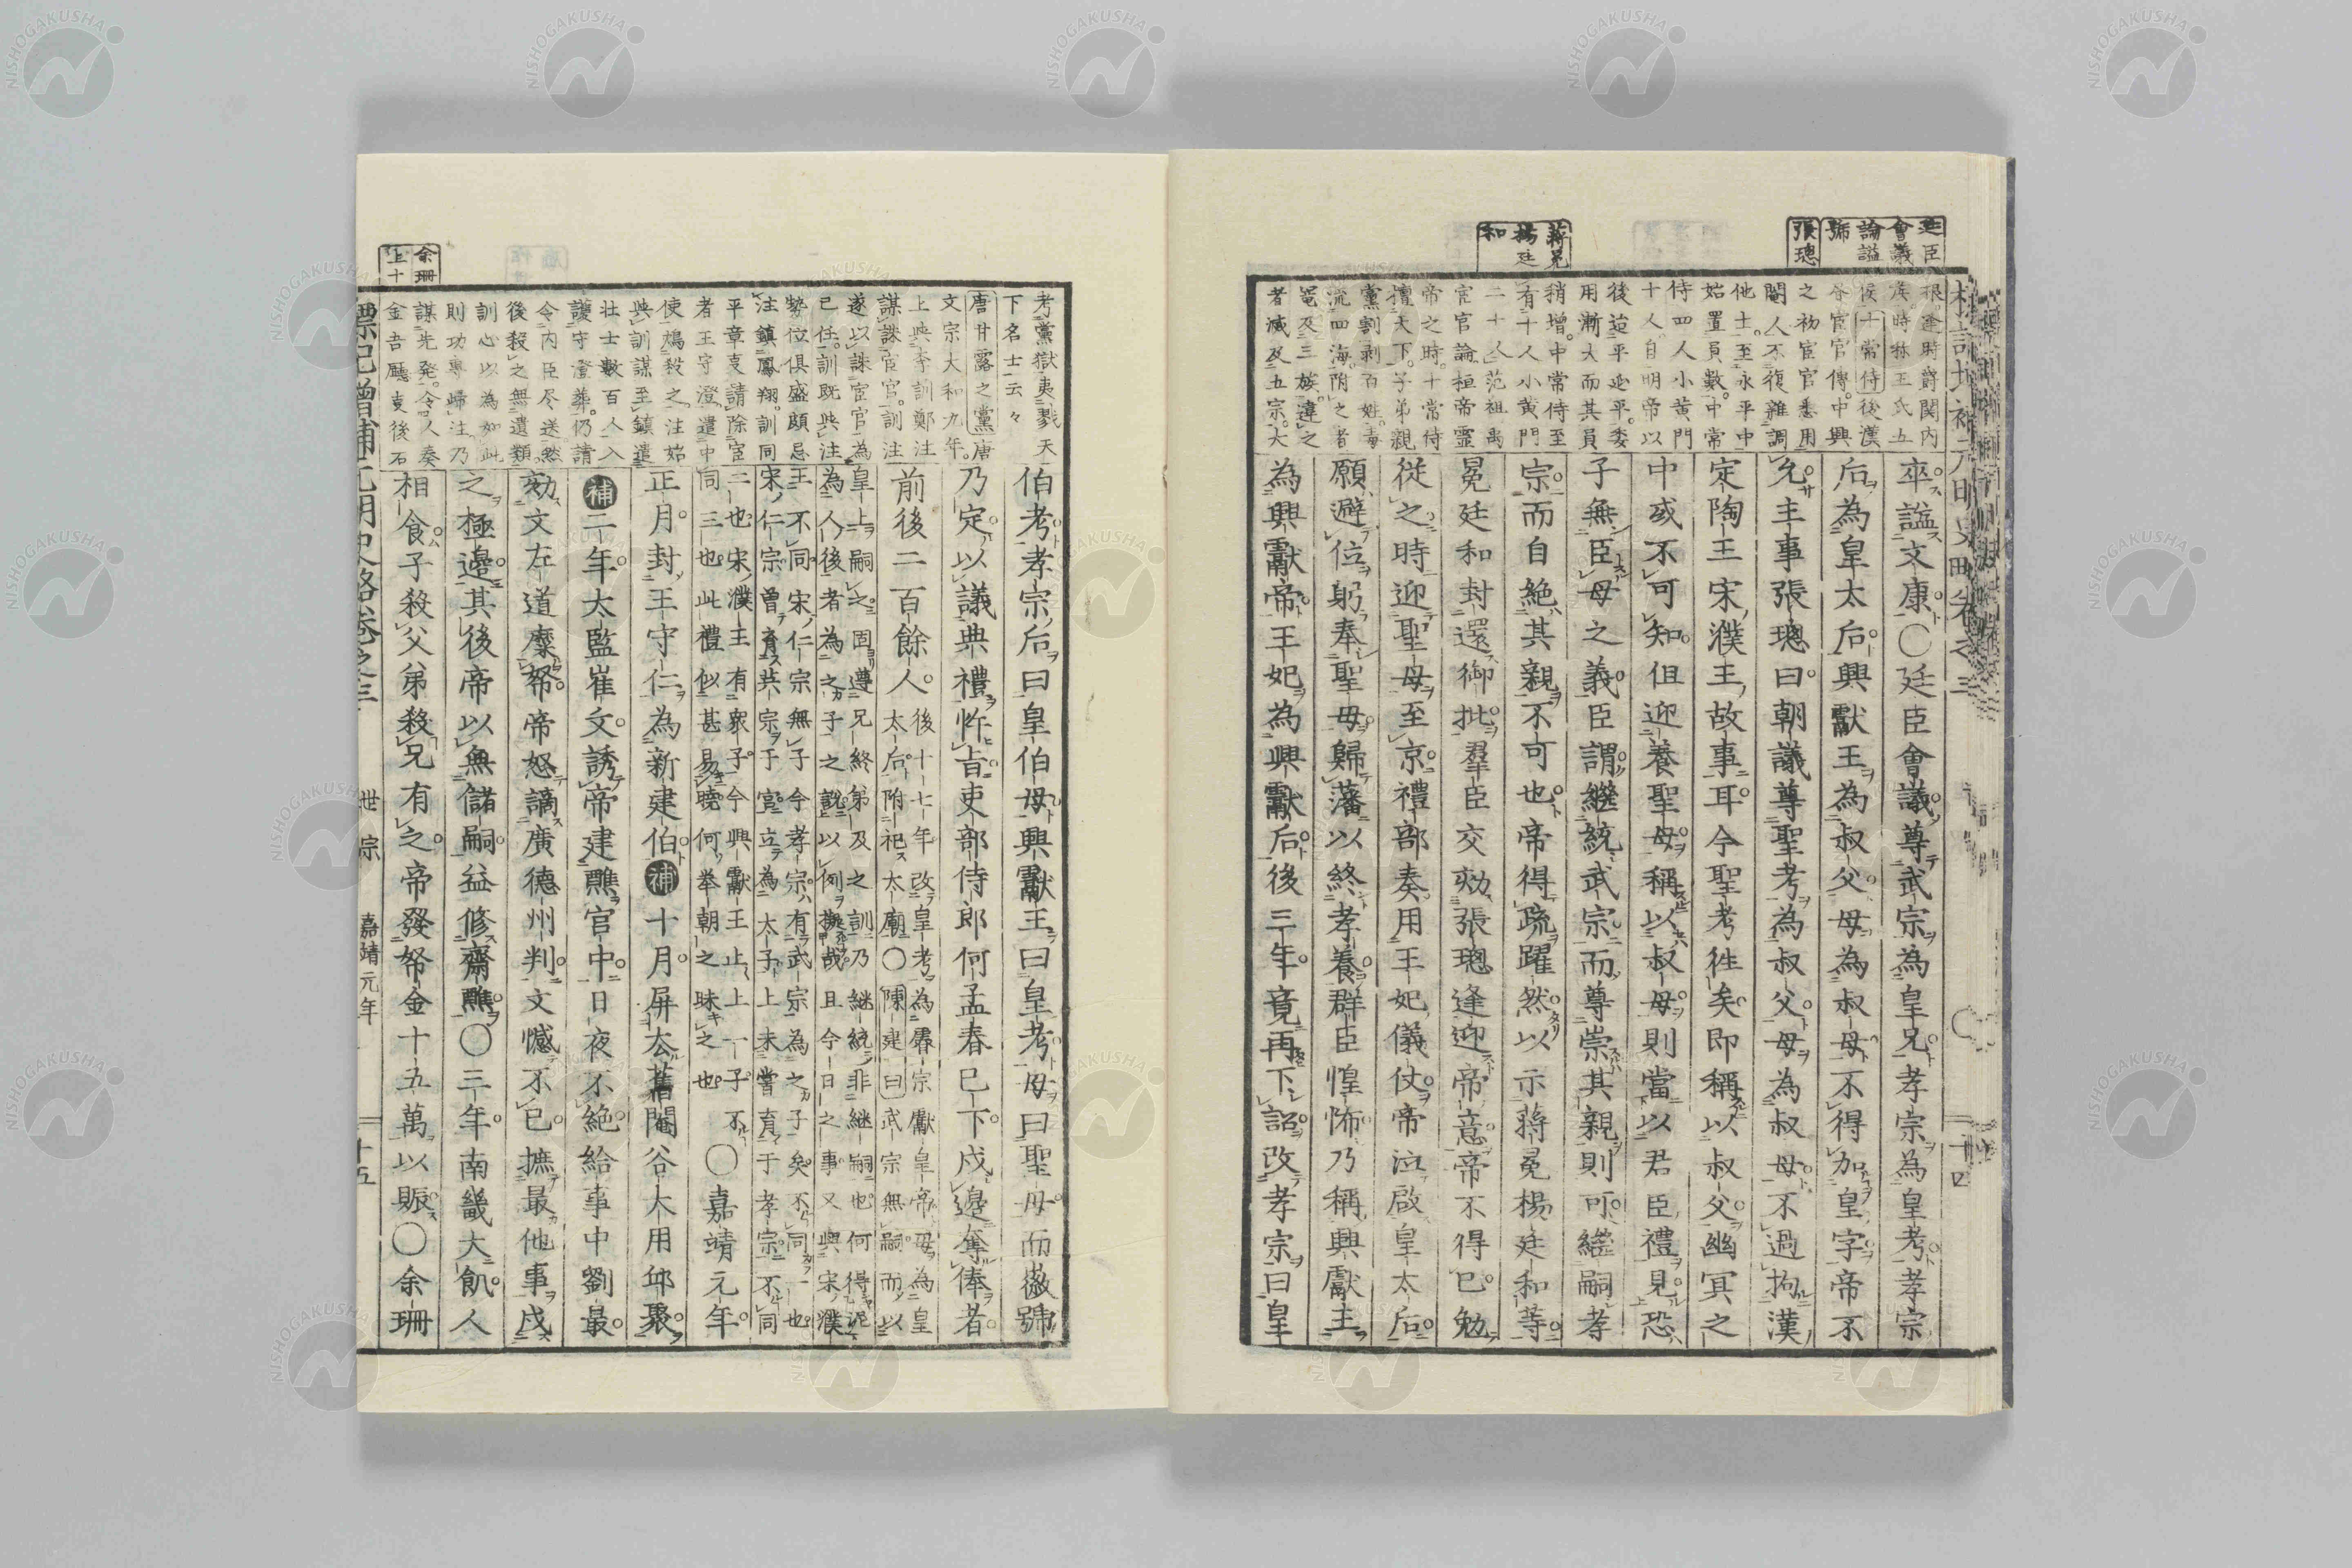 廷臣
會議
論謚
號
張璁
蔣冕
楊廷
和
根逢時爵関内
侯時林王氏五
侯十常侍後漢
書宦官傳中興
之初宦官悉用
閹人不復雜調
他士至永平中
始置員數中常
侍四人小黄門
十人自明帝以
後迨乎延平委
用漸大而其員
稍增中常侍至
有十人小黄門
二十人范祖禹
宦官論桓帝靈
帝之時十常侍
擅天下子弟親
黨割剥百姓毒
流四海附之者
寵及三族違之
者滅及五宗大
卒謚文康〇廷臣會議尊武宗為皇兄孝宗為皇考孝宗
后為皇太后興獻王為叔父母為叔母不得加皇字帝不
允主事張璁曰朝議尊聖考為叔父母為叔母不過拘漢
定陶王宋濮王故事耳今聖考徃矣即稱以叔父幽冥之
中或不可知但迎養聖母稱以叔母則當以君臣禮見恐
子無臣母之義臣謂繼統武宗而尊崇其親則可繼嗣孝
宗而自絶其親不可也帝得疏躍然以示蔣冕楊廷和等
冕廷和封還御批羣臣交劾張璁逢迎帝意帝不得已勉
従之時迎聖母至京禮部奏用王妃儀仗帝泣啟皇太后
願避位躬奉聖母歸藩以終孝養群臣惶怖乃稱興獻主
為興獻帝王妃為興獻后後三年竟再下詔改孝宗曰皇
余珊
上十
考黨獄夷戮天
下名士云々
唐甘露之黨唐
文宗大和九年
上與李訓鄭注
謀誅宦官訓注
遂以誅宦官為
已任訓既與注
勢位俱盛頗忌
注鎮鳳翔訓同
平章事請除宦
者王守澄遣中
使鴆殺之注始
與訓謀至鎮遣
壮士數百人入
護守澄葬仍請
令内臣尽送然
後殺之無遺類
訓心以為如此
則功專歸注乃
謀先発令人奏
金吾廳事後石
伯考孝宗后曰皇伯母興獻王曰皇考母曰聖母而徽號
乃定以議典禮忤旨吏部侍郎何孟春已下戍邊奪俸者
前後二百餘人後十七年改皇考為睿宗獻皇帝母為皇
太后附祀太廟〇陳建曰武宗無嗣而以
皇上嗣之固遵兄終弟及之訓乃継統非継嗣也何得泥
為人後者為之子之説以例擬哉且今日之事又與宋濮
王不同宋仁宗無子今孝宗有武宗為之子矣不同一也
宋仁宗曾育共宗于宮立為太子上未嘗育于孝宗不同
二也宋濮王有衆子今興獻王止上一子不
同三也此禮似甚易曉何挙朝之昧之也〇嘉靖元年
正月封王守仁為新建伯補十月屏去舊閹谷大用邱聚
補二年太監崔文誘帝建醮官中日夜不絶給事中劉最
劾文左道糜帑帝怒謫廣德州判文憾不已摭最他事戍
之極邊其後帝以無儲嗣益修齋醮〇三年南畿大飢人
相食子殺父弟殺兄有之帝發帑金十五萬以賑〇余珊
標記增補元明史略卷之三 世宗 嘉靖元年 十五